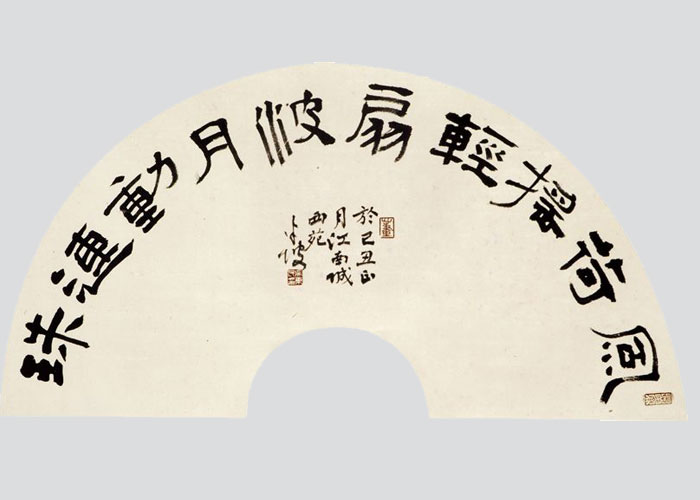 風荷搖輕扇波月動連珠
於己丑正
月江南城
西苑